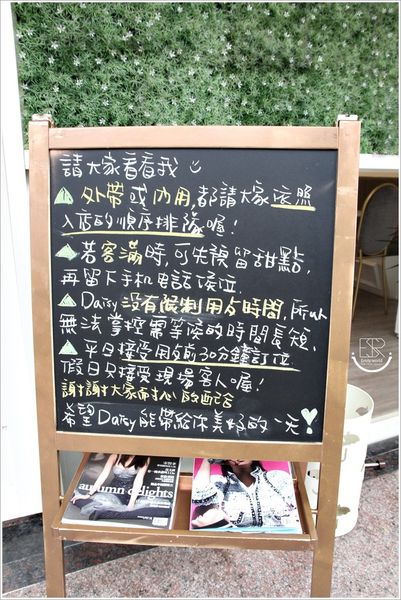 請大家看看我
外帶或內用,都請大家依照
入店的順序排隊喔!
若客滿時,可先預留甜點,
再留下手机電話候位.
Daisy沒有限制用餐時間,所以
無法掌控需等候的時間長短.
平日接受用餐前30分鐘訂位
假日只接受現場客人喔!
謝謝大家耐心的配合
希望Daisy能帶給你美好的一天!
autumn delights